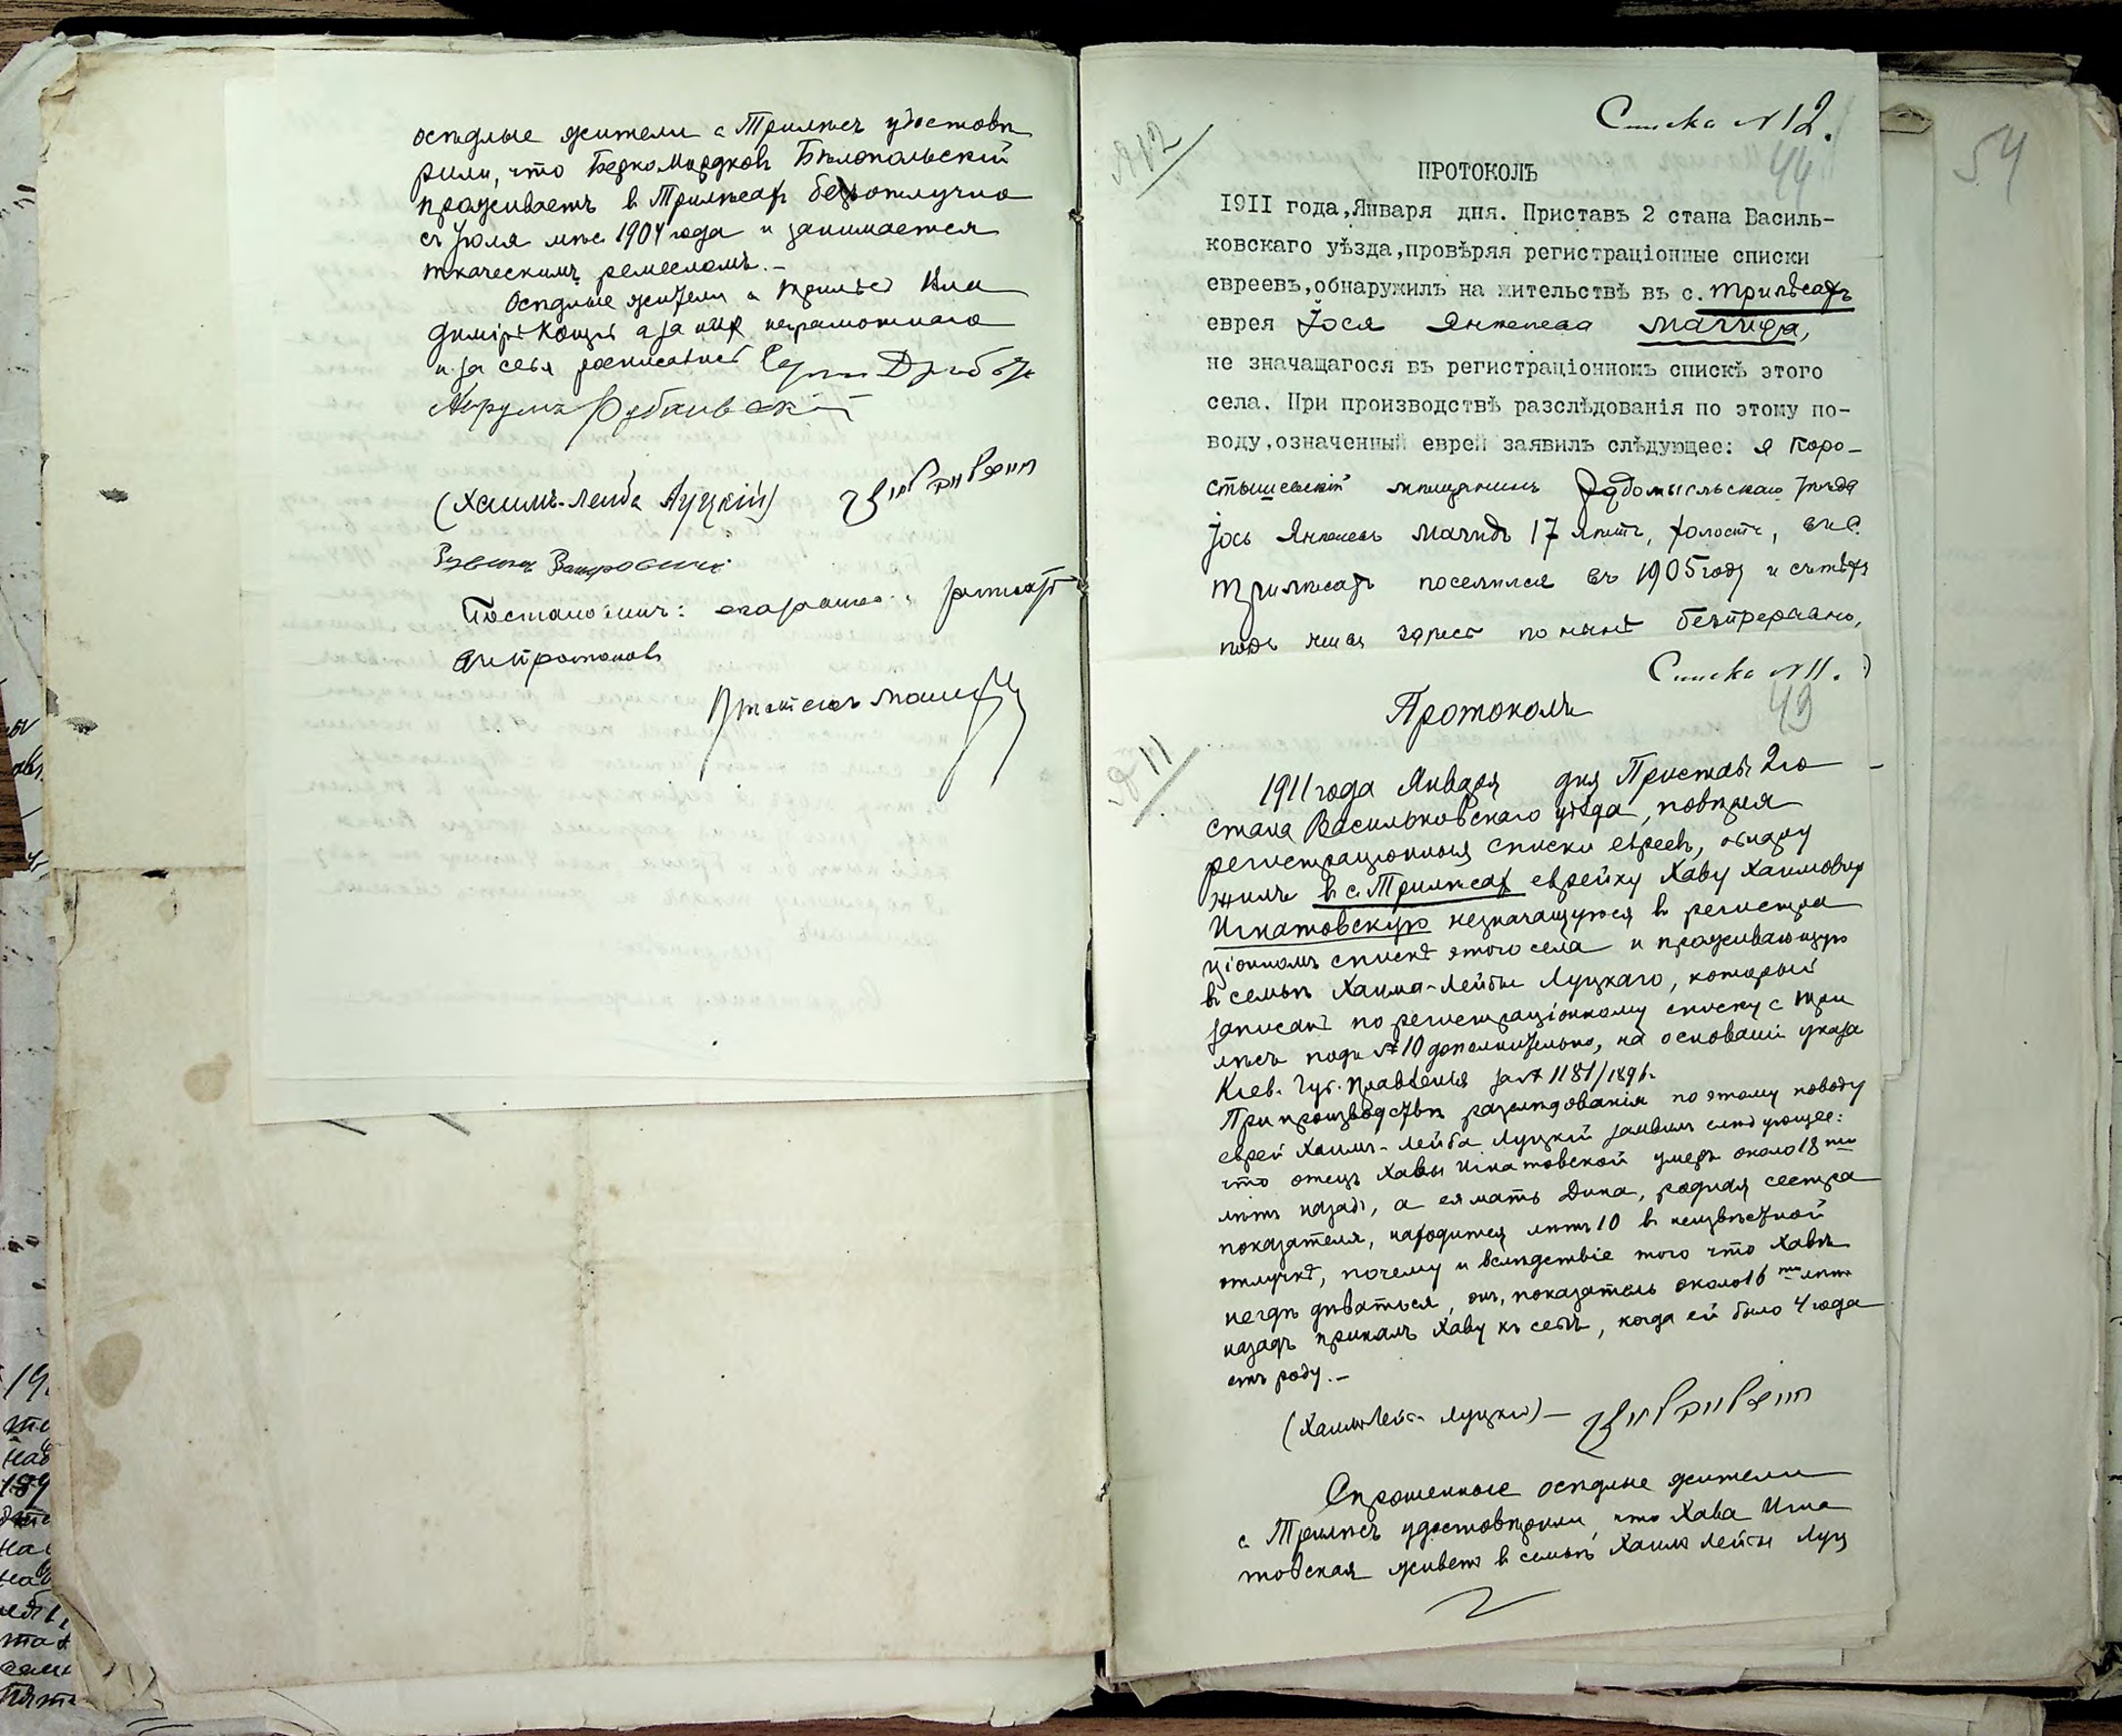 осѣдлые жители с Трилѣсъ удостовѣ
рили, что Берко Мордковъ Бѣлопольскій
проживаетъ в Трилѣсахъ безотлучно
съ Іюля мѣс. 1904 года и занимается
ткаческимъ ремесломъ.-
Осѣдлые жители с Трилѣсъ Вла
диміръ а за них неграмотнаго
и за себя росписался
(Хаимъ-Лейба Луцкій)
Постановилъ: записать
въ протоколъ
54
Списка №12.
№12
44
ПРОТОКОЛЪ
1911 года,Января дня. Приставъ 2 стана Василь-
ковскаго уѣзда,провѣряя регистраціонные списки
евреевъ,обнаружилъ на жительствѣ въ с. Трилѣсахъ
еврея Іося Янкелева Магида,
не значащагося въ регистраціонномъ спискѣ этого
села. При производствѣ разслѣдованія по этому по-
воду,означенный еврей заявилъ слѣдующее: я Коро-
стышевскій мѣщанинъ Радомысльскаго уѣзда
Іось Янкелевъ Магидъ 17 лѣтъ, холостъ, въ с.
Трилѣсахъ поселился въ 1905 году и съ тѣхъ
поръ живу здѣсь по нынѣ безпрерывно,
Списка №11.
43
№11
Протоколъ
1911 года Января дня Приставъ 2го
стана Васильковскаго уѣзда, повѣряя
регистраціонныя списки евреевъ, обнару
жилъ в с. Трилѣсах еврейку Хаву Хаимовну
Игнатовскую незначащуюся в регистра
ціонномъ спискѣ этого села и проживающую
в семьѣ Хаима-Лейбы Луцкаго, который
записанъ по регистраціонному списку с Три
лѣсъ подъ №10 дополнительно, на основаніи указа
Кіев. Губ. Правленія за № 1181/1891.
При производствѣ разслѣдованія по этому поводу
еврей Хаимъ-Лейба Луцкій заявилъ слѣдующее:
что отецъ Хавы Игнатовской умеръ около 18ти
лѣтъ назадъ, а ея мать Дина, родная сестра
показателя, находится лѣтъ 10 в неизвѣстной
отлучкѣ, почему и вслѣдствіе того что Хавѣ
негдѣ дѣваться, онъ, показатель около 16ти лѣтъ
назадъ принялъ Хаву къ себѣ, когда ей было 4 года
отъ роду.-
(Хаимъ Лейба Луцкій)-
Спрошенные осѣдлые жители
с Трилѣсъ удостовѣрили, что Хава Игна
товская живетъ в семьѣ Хаима Лейбы Луц